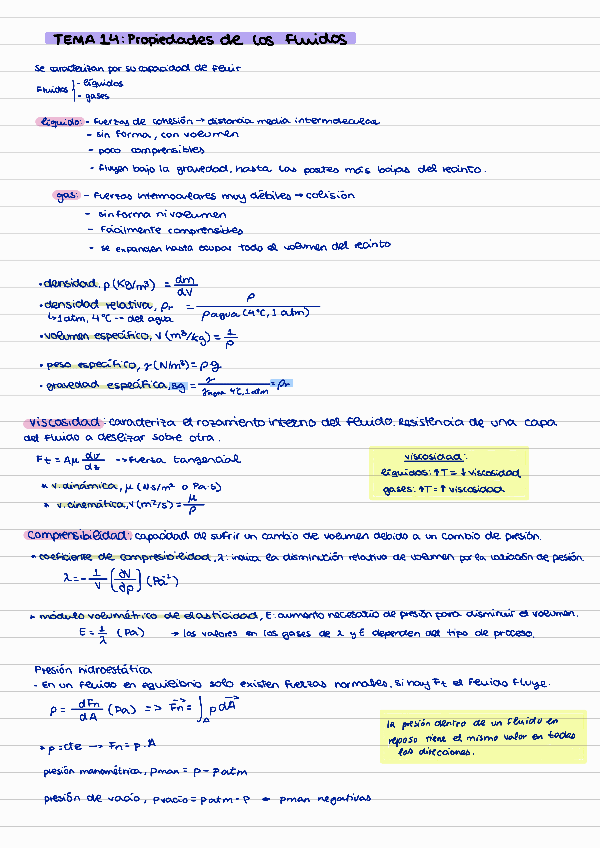 TEMA 14: Propiedades de los fluidos
Se caracterizan por su capacidad de fluir
Fluidos - líquidos
- gases
líquido: - fuerzas de cohesión → distancia media intermolecular
- sin forma, con volumen
- poco comprensibles
- fluyen bajo la gravedad, hasta las partes más bajas del recinto.
gas: - fuerzas intermoculares muy débiles → colisión
- sin forma ni volumen
- facilmente comprensibles
- se expanden hasta ocupar todo el volumen del recinto
• densidad, ρ (Kg/m³) = dm/dV
• densidad relativa, ρr = ρ / ρ agua (4°C, 1 atm)
↳ 1 atm, 4°C -- del agua
• volumen específico, v (m³/kg) = 1/ρ
• peso específico, γ (N/m³) = ρ g
• gravedad específica, sg = γ / γagua 4°C, 1 atm = ρr
viscosidad: caracteriza el rozamiento interno del fluido. Resistencia de una capa
del fluido a deslizar sobre otra.
Ft = Aμ dv/dz --> fuerza tangencial
* v. dinámica, μ (Ns/m² o Pa·s)
* v. cinemática, ν (m²/s) = μ/ρ
viscosidad:
líquidos: ↑T = ↓ viscosidad
gases: ↑T = ↑ viscosidad
Comprensibilidad: capacidad de sufrir un cambio de volumen debido a un cambio de presión.
* coeficiente de compresibilidad, λ: indica la disminución relativa de volumen por la variación de presión
λ = - 1/V [∂V/∂p] (Pa⁻¹)
* módulo volumétrico de elasticidad, E: aumento necesario de presión para disminuir el volumen.
E = 1/λ (Pa) → los valores en los gases de λ y E dependen del tipo de proceso.
Presión hidroestática
- En un fluido en equilibrio solo existen fuerzas normales, si hay Ft el fluido fluye.
p = dFn/dA (Pa) => Fn = ∫A p dA
* p = cte → Fn = p · A
la presión dentro de un fluido en
reposo tiene el mismo valor en todas
las direcciones.
presión manométrica, pman = p - patm
presión de vacío, pvacío = patm - p * pman negativas